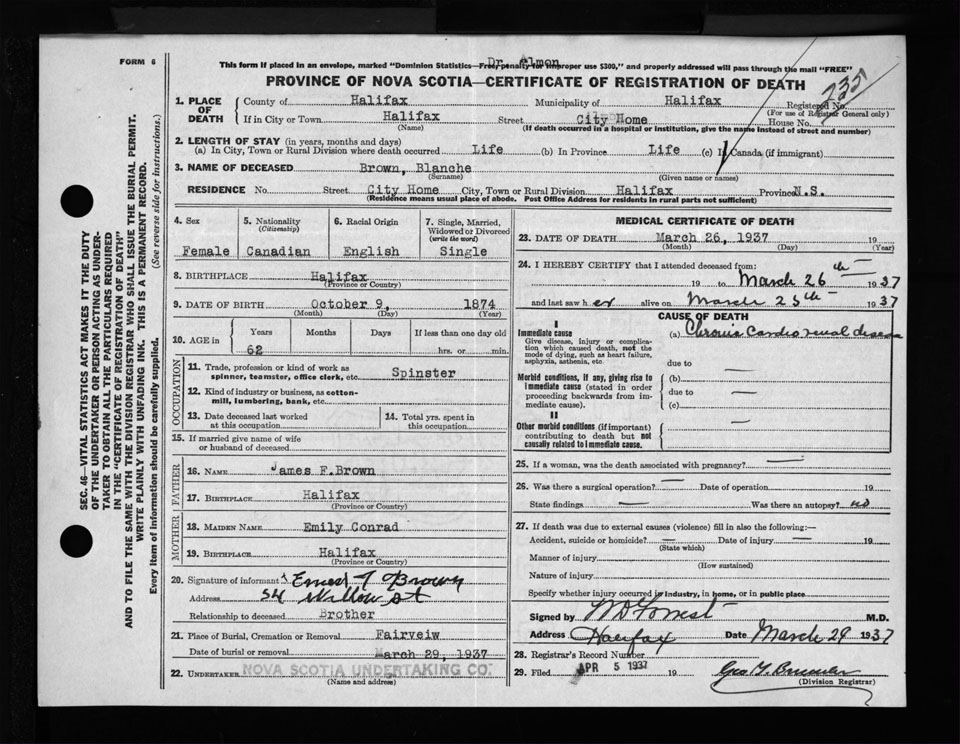 FORM 6
Dr. Almon
This form if placed in an envelope, marked "Dominion Statistics—Free, penalty for improper use $300," and properly addressed will pass through the mail "FREE"
PROVINCE OF NOVA SCOTIA—CERTIFICATE OF REGISTRATION OF DEATH
235
1. PLACE OF DEATH
County of Halifax Municipality of Halifax Registered No.
(For use of Registrar General only)
If in City or Town Halifax Street City Home House No.
(Name) (If death occurred in a hospital or institution, give the name instead of street and number)
2. LENGTH OF STAY (in years, months and days)
(a) In City, Town or Rural Division where death occurred Life (b) In Province Life (c) In Canada (if immigrant)
3. NAME OF DECEASED Brown, Blanche
(Surname) (Given name or names)
RESIDENCE No. Street City Home City, Town or Rural Division Halifax Province N.S.
(Residence means usual place of abode. Post Office Address for residents in rural parts not sufficient)
SEC. 46—VITAL STATISTICS ACT MAKES IT THE DUTY
OF THE UNDERTAKER OR PERSON ACTING AS UNDER-
TAKER TO OBTAIN ALL THE PARTICULARS REQUIRED
IN THE "CERTIFICATE OF REGISTRATION OF DEATH"
AND TO FILE THE SAME WITH THE DIVISION REGISTRAR WHO SHALL ISSUE THE BURIAL PERMIT.
WRITE PLAINLY WITH UNFADING INK. THIS IS A PERMANENT RECORD.
Every item of information should be carefully supplied. (See reverse side for instructions.)
4. Sex
Female
5. Nationality
(Citizenship)
Canadian
6. Racial Origin
English
7. Single, Married,
Widowed or Divorced
(write the word)
Single
8. BIRTHPLACE Halifax
(Province or Country)
9. DATE OF BIRTH October 9, 1874
(Month) (Day) (Year)
10. AGE in
Years Months Days If less than one day old
62 hrs. or min.
OCCUPATION
11. Trade, profession or kind of work as
spinner, teamster, office clerk, etc. Spinster
12. Kind of industry or business, as cotton-
mill, lumbering, bank, etc.
13. Date deceased last worked
at this occupation
14. Total yrs. spent in
this occupation
15. If married give name of wife
or husband of deceased
FATHER
16. NAME James F. Brown
17. BIRTHPLACE Halifax
(Province or Country)
MOTHER
18. MAIDEN NAME Emily Conrad
19. BIRTHPLACE Halifax
(Province or Country)
20. Signature of informant Ernest T Brown
Address 54 Willow St
Relationship to deceased Brother
21. Place of Burial, Cremation or Removal Fairveiw
Date of burial or removal March 29, 1937
22. UNDERTAKER NOVA SCOTIA UNDERTAKING CO.
(Name and address)
MEDICAL CERTIFICATE OF DEATH
23. DATE OF DEATH March 26, 1937 19
(Month) (Day) (Year)
24. I HEREBY CERTIFY that I attended deceased from:
19 to March 26th 1937
and last saw h er alive on March 25th 1937
CAUSE OF DEATH
I
Immediate cause
Give disease, injury or complica-
tion which caused death, not the
mode of dying, such as heart failure,
asphyxia, asthenia, etc.
(a) Chronic Cardio renal disease
due to —
Morbid conditions, if any, giving rise to
immediate cause (stated in order
proceeding backwards from im-
mediate cause).
(b) —
due to —
(c)
II
Other morbid conditions (if important)
contributing to death but not
causally related to immediate cause.
—
25. If a woman, was the death associated with pregnancy? —
26. Was there a surgical operation? — Date of operation 19
State findings — Was there an autopsy? no
27. If death was due to external causes (violence) fill in also the following:—
Accident, suicide or homicide? — Date of injury — 19
(State which)
Manner of injury
(How sustained)
Nature of injury
Specify whether injury occurred in industry, in home, or in public place
Signed by W D Forrest M.D.
Address Halifax Date March 29 1937
28. Registrar's Record Number
29. Filed APR 5 1937 19
(Division Registrar)